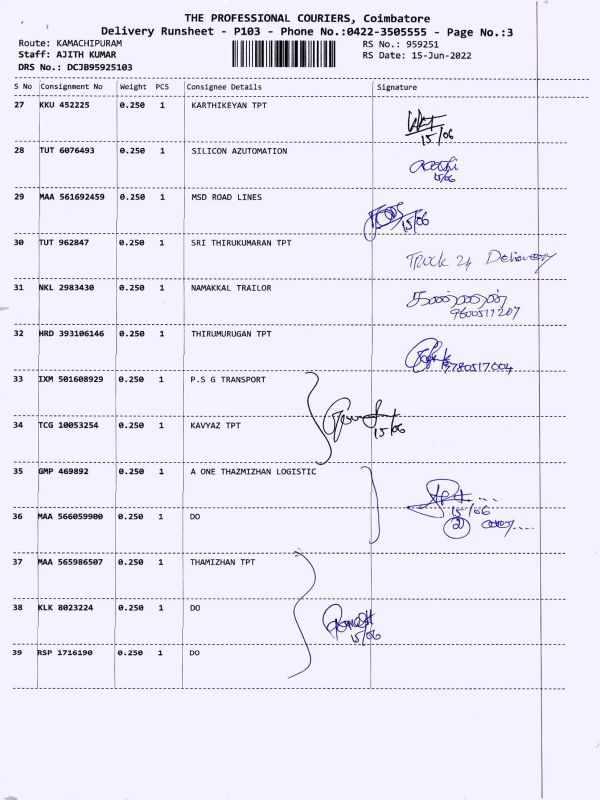 THE PROFESSIONAL COURIERS, Coimbatore
Delivery Runsheet - P103 - Phone No.:0422-3505555 - Page No.:3
Route: KAMACHIPURAM RS No.: 959251
Staff: AJITH KUMAR RS Date: 15-Jun-2022
DRS No.: DCJB95925103
S No Consignment No Weight PCS Consignee Details Signature
27 KKU 452225 0.250 1 KARTHIKEYAN TPT
15/06
28 TUT 6076493 0.250 1 SILICON AZUTOMATION
15/06
29 MAA 561692459 0.250 1 MSD ROAD LINES
15/06
30 TUT 962847 0.250 1 SRI THIRUKUMARAN TPT
Truck 24 Delivery
31 NKL 2983430 0.250 1 NAMAKKAL TRAILOR
9600517207
32 HRD 393106146 0.250 1 THIRUMURUGAN TPT
33 IXM 501608929 0.250 1 P.S G TRANSPORT
34 TCG 10053254 0.250 1 KAVYAZ TPT
15/06
35 GMP 469892 0.250 1 A ONE THAZMIZHAN LOGISTIC
15/06
36 MAA 566059900 0.250 1 DO
2
37 MAA 565986507 0.250 1 THAMIZHAN TPT
38 KLK 8023224 0.250 1 DO
15/06
39 RSP 1716190 0.250 1 DO